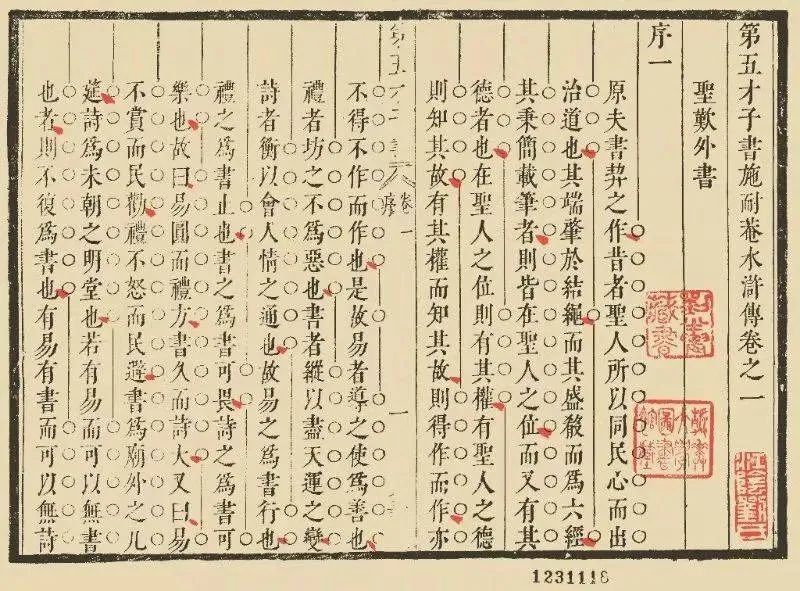 第五才子書施耐菴水滸傳卷之一
聖歎外書
序一
原夫書契之作昔者聖人所以同民心而出
治道也其端肇於結繩而其盛殽而為六經
其秉簡載筆者則皆在聖人之位而又有其
德者也在聖人之位則有其權有聖人之德
則知其故有其權而知其故則得作而作亦
第五才子書
序
卷一
一
不得不作而作也是故易者導之使為善也
禮者坊之不為惡也書者縱以盡天運之變
詩者衡以會人情之通也故易之為書行也
禮之為書止也書之為書可畏詩之為書可
樂也故曰易圓而禮方書久而詩大又曰易
不賞而民勸禮不怒而民避書為廟外之几
筵詩為未朝之明堂也若有易而可以無書
也者則不復為書也有易有書而可以無詩
1231118